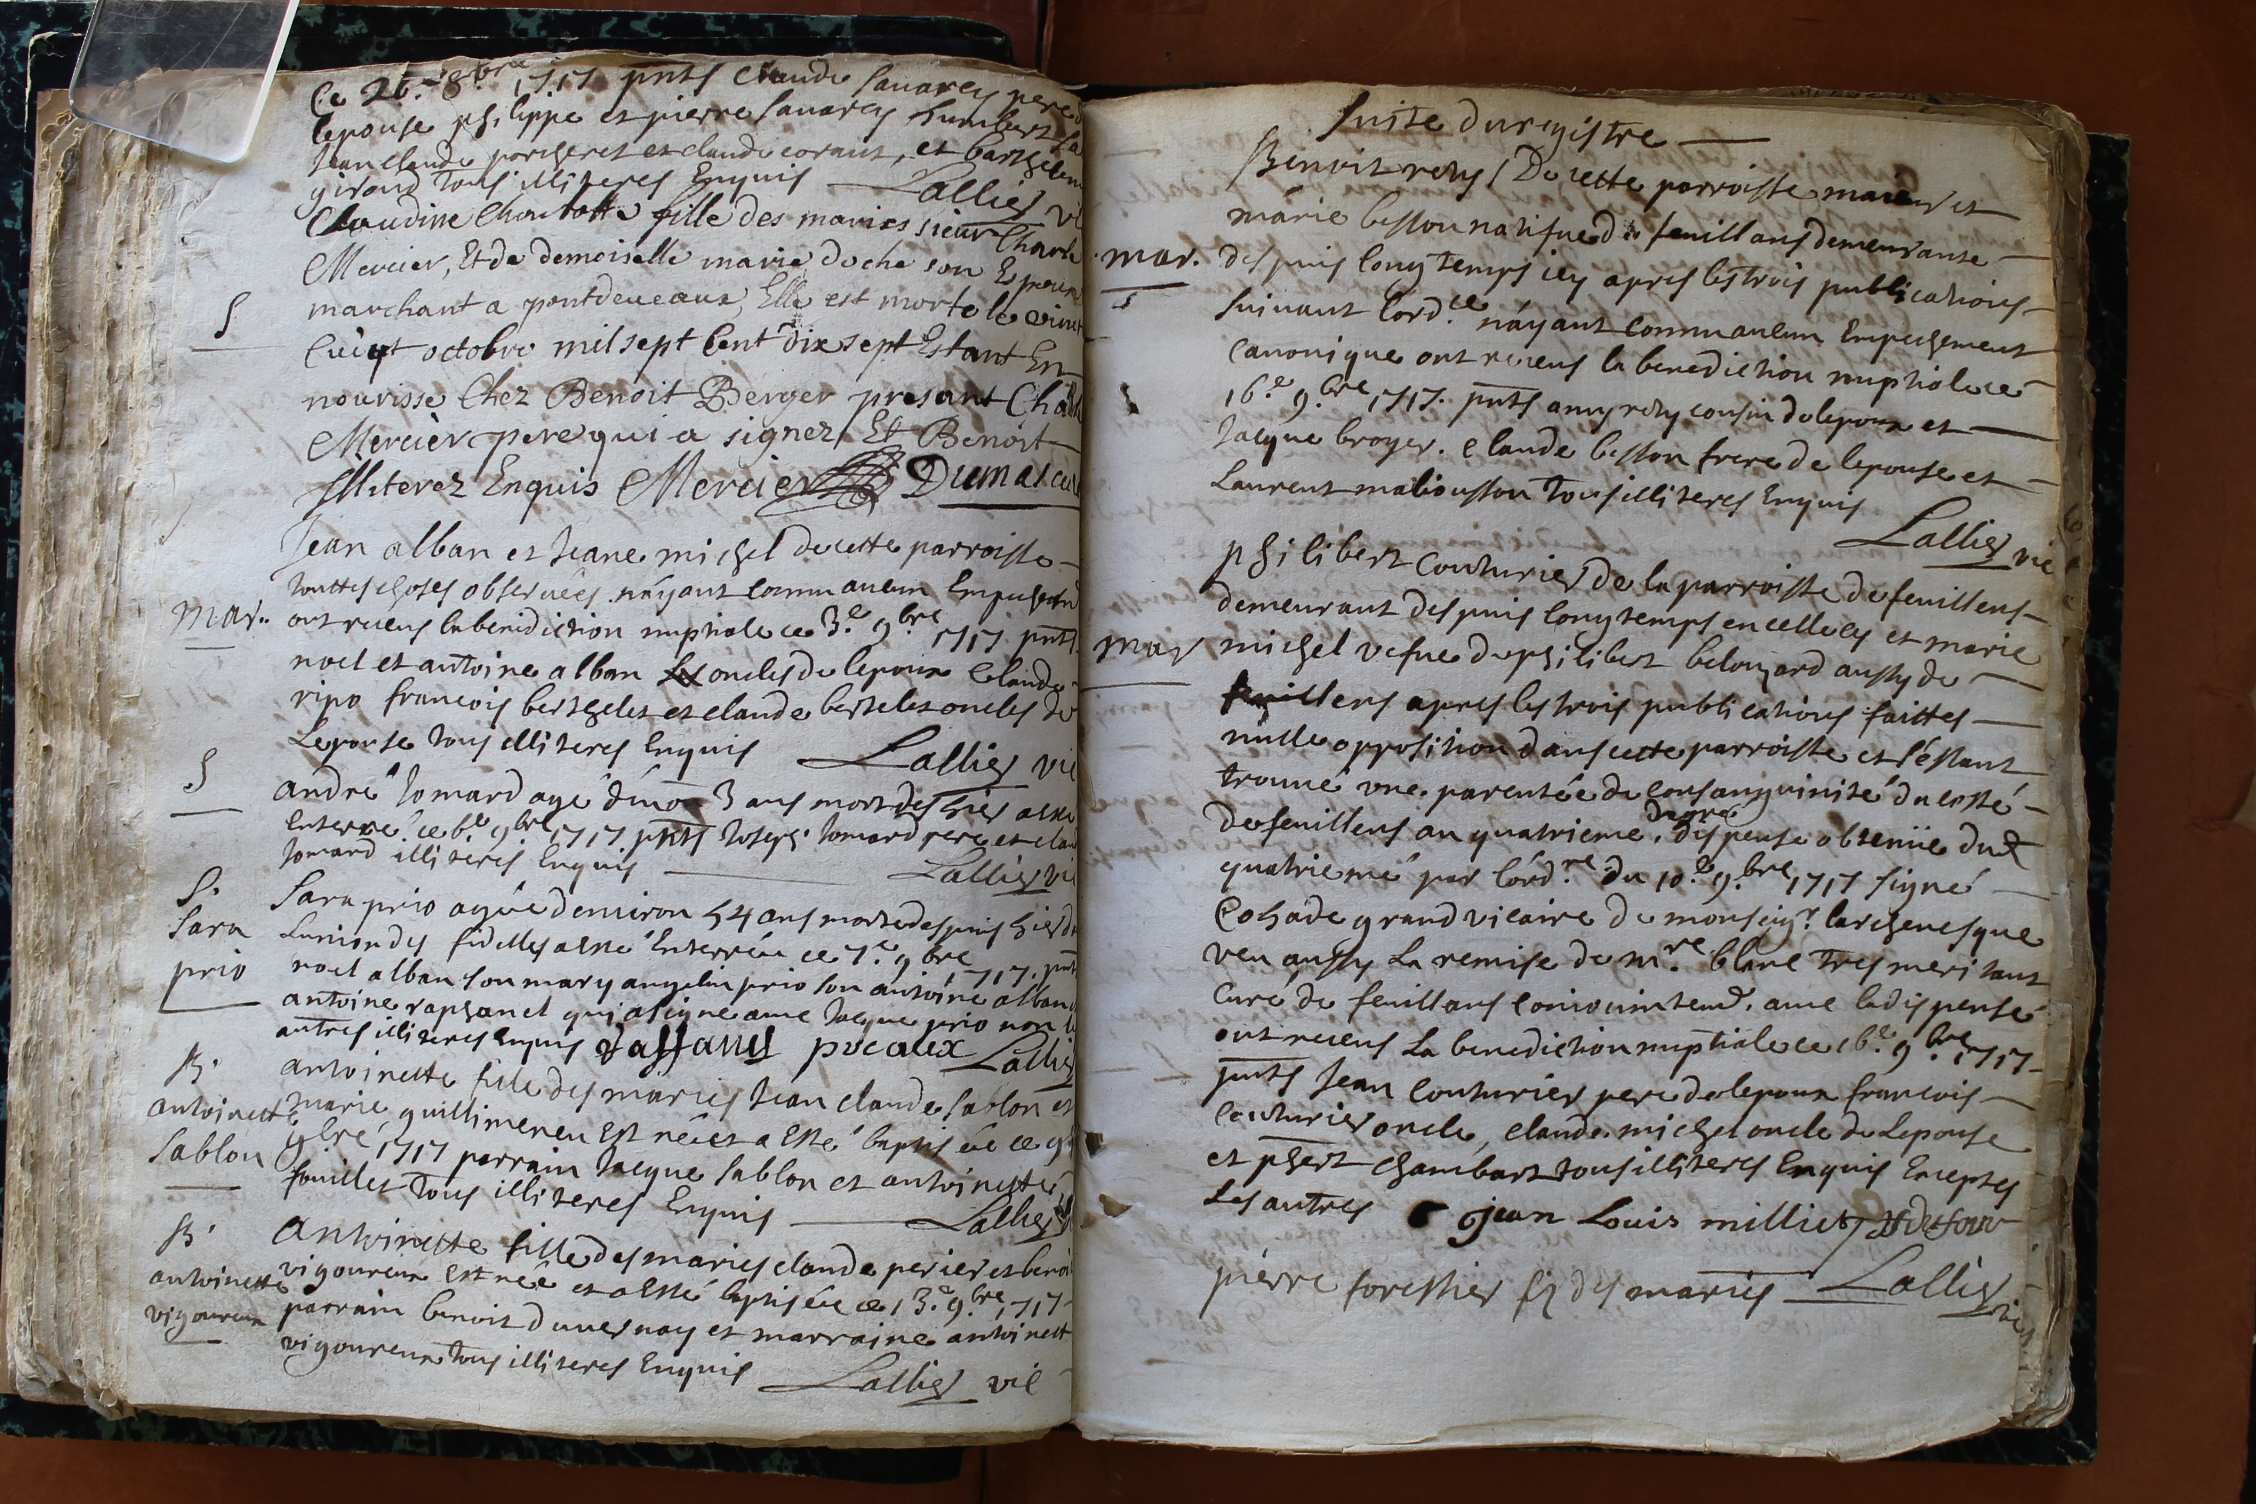 Ce 26.e 8.bre 1717 pnts Claude Sauarey pere d
lepouse philippe et pierre Sauarey humbert La
Jean Claude porcheret et claude corant, et barthelem
giraud tous illiteres Enquis Lallier vic
Claudine Charlotte fille des maries sieur Charle
Mercier, Et de demoiselle marie Doche son Epouse
marchant a pontdeueaux, Elle est morte le vint
S
octobre mil sept Cent dix sept Estant En
nourisse Chez Benoit Berger presant Charle
Mercier pere qui a signez Et Benoit
Illiterez Enquis Mercier Dumas curé
Jean alban et Jeane michel de cette parroisse
touttes choses obseruées nayant commun aucun Empechem
mar.
ont receus la benediction nuptiale ce 3.e 9.bre 1717 pnts
noel et antoine alban oncles de lepoux Claude
ripo francois berthelet et claude berthelet oncles de
Lepouse tous illiteres Enquis Lallier vic
S
andré Jomard agé 3 ans mort des hier a esté
Enterré ce 6.e 9.bre 1717 pnts Joseph Jomard pere et clau
Jomard illiteres Enquis Lallier vic
S.
Sara
prio
Sara prio agée denuiron 54 ans morte despuis hier d
Lunion des fidelles a esté Enterrée ce 7.e 9.bre 1717. pnts
noel alban son mary angelin prio son antoine alban
antoine raphanel qui a signe auec Jacque prio non l
autres illiteres Enquis Raffanel Lallier
B.
antoinette
Sablon
antoinette fille des maries Jean claude Sablon et
marie guillimeneu Est née et a Esté baptisée ce 9.e
9.bre 1717 parrain Jacque Sablon et antoinette
fouillet tous illiteres Enquis Lallier
B.
antoinette
vigoureux
antoinette fille des maries claude perier et benoi
vigoureux Est née et a Esté baptisée ce 13.e 9.bre 1717
parrain benoit duuernay et marraine antoinett
vigoureux tous illiteres Enquis Lallier vic
Suite du registre
Benoit rety De cette parroisse et
marie besson natifue de feuillans demeurante
mar.
despuis longtemps icy apres les trois publications
suiuant lord.ce nayant commun aucun Empechement
canonique ont receus la benediction nuptiale ce
16.e 9.bre 1717. pnts amy rety cousin de lepoux et
Jacque broyer. Claude besson frere de lepouse et
Laurent maliousson tous illiteres Enquis
Lallier vic
philibert Couturier de la parroisse de feuillens
demeurant despuis longtemps en celle cy et marie
mar
michel vefue de philibert belouzard aussy de
feuillens apres les trois publications faittes
nulle opposition dans cette parroisse et sestant
trouué vne parentée de consanguinité du costé
de feuillens au quatrieme degré dispense obtenüe dud
quatriemé par lord.re du 10.e 9.bre 1717 signé
Cohade grand vicaire de monseig.r larcheuesque
veu aussy la remise de m.re blanc tres meritant
Curé de feuillans auec la dispense
ont receus la benediction nuptiale ce 16.e 9.bre 1717
pnts Jean Couturier pere de lepoux francois
couturier oncle, claude michel oncle de Lepouse
et phert chambart tous illiteres Enquis Exceptes
Les autres jean Louis milliet dufour
pierre forestier fiz des maries Lallier vic